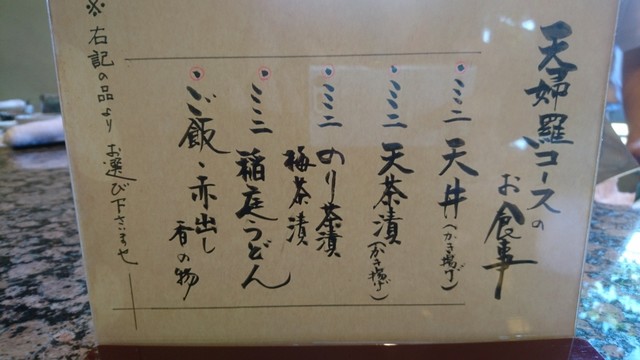 天婦羅コースの
お食事
・ミニ天丼(かき揚げ)
・ミニ天茶漬(かき揚げ)
・ミニのり茶漬
梅茶漬
・ミニ稲庭うどん
・ご飯・赤出し
香の物
※右記の品よりお選び下さいませ